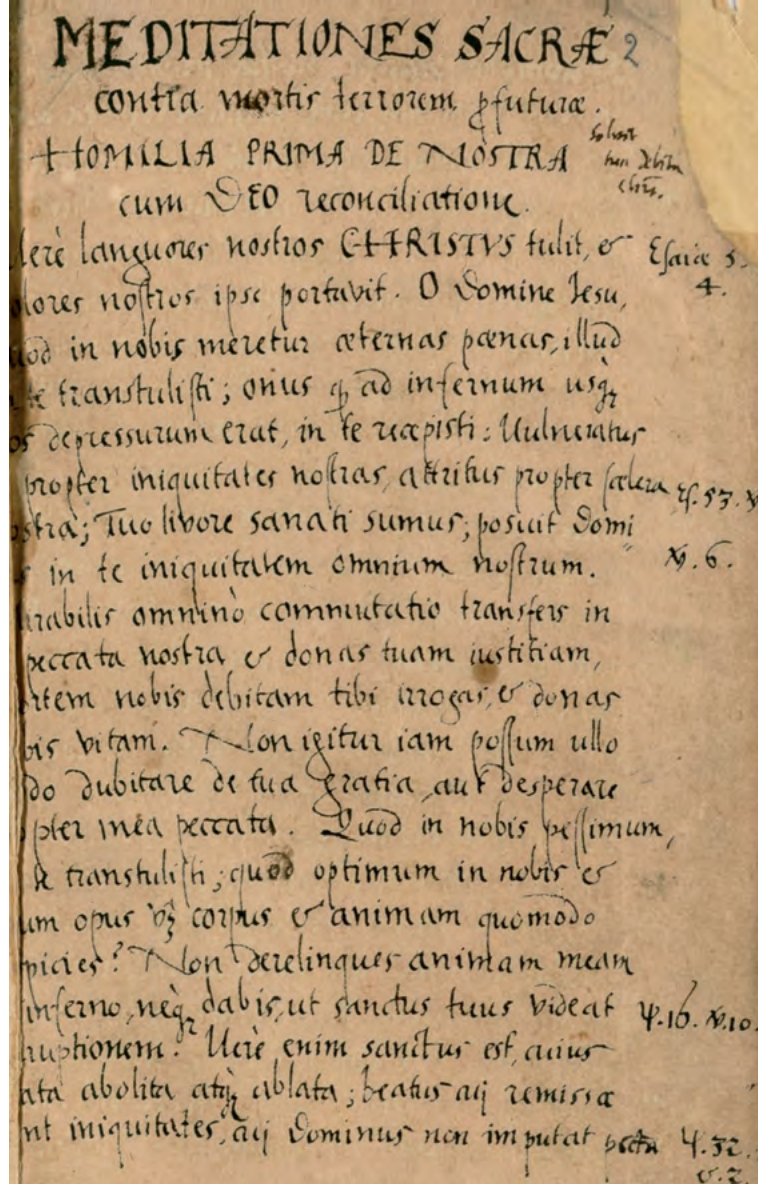 MEDITATIONES SACRÆ 2
contra mortis terrorem ꝓfuturæ.
HOMILIA PRIMA DE NOSTRA
cum DEO reconciliatione.
erè languores nostros CHRISTVS tulit, & Esaiæ 5.
lores nostros ipse portavit. O Domine Jesu, 4.
od in nobis meretur æternas pœnas, illud
te transtulisti; onus ꝙ ad infernum usqꝫ
depressurum erat, in te recepisti: Uulneratus
propter iniquitates nostras, attritus propter scelera 53.
stra; Tuo livore sanati sumus; posuit Domi
in te iniquitatem omnium nostrum. 6.
rabilis omninò commutatio transfers in
peccata nostra & donas tuam iustitiam,
rtem nobis debitam tibi irrogas, & donas
bis vitam. Non igitur iam possum ullo
do dubitare de tua gratia, aut desperare
pter mea peccata. Quod in nobis pessimum,
te transtulisti; quod optimum in nobis &
um opus vꝫ corpus & animam quomodo
picies? Non derelinques animam meam
inferno, neqꝫ dabis, ut sanctus tuus videat Ψ.16. v.10.
ruptionem. Uerè enim sanctus est, cuius
ata abolita atqꝫ ablata; beatus cuj remissæ
nt iniquitates, cuj Dominus non imputat Ψ.32.
v.2.